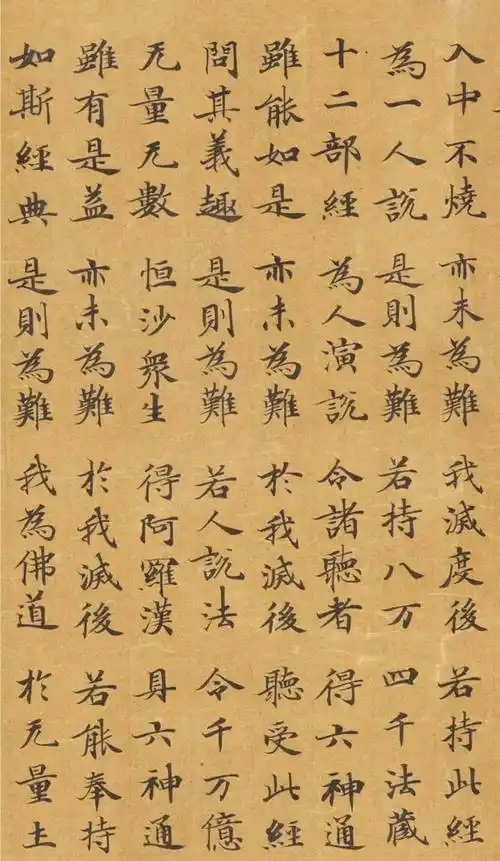 入中不燒 亦未為難 我滅度後 若持此經
為一人說 是則為難 若持八万 四千法藏
十二部經 為人演說 令諸聽者 得六神通
雖能如是 亦未為難 於我滅後 聽受此經
問其義趣 是則為難 若人說法 令千万億
无量无數 恒沙衆生 得阿羅漢 具六神通
雖有是益 亦未為難 於我滅後 若能奉持
如斯經典 是則為難 我為佛道 於无量土